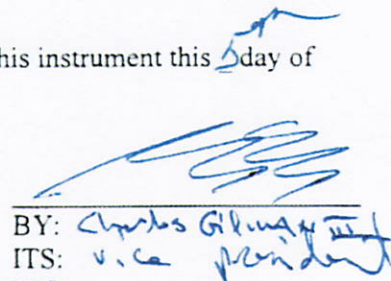 his instrument this 5th day of
BY: Charles Gilman III
ITS: Vice president